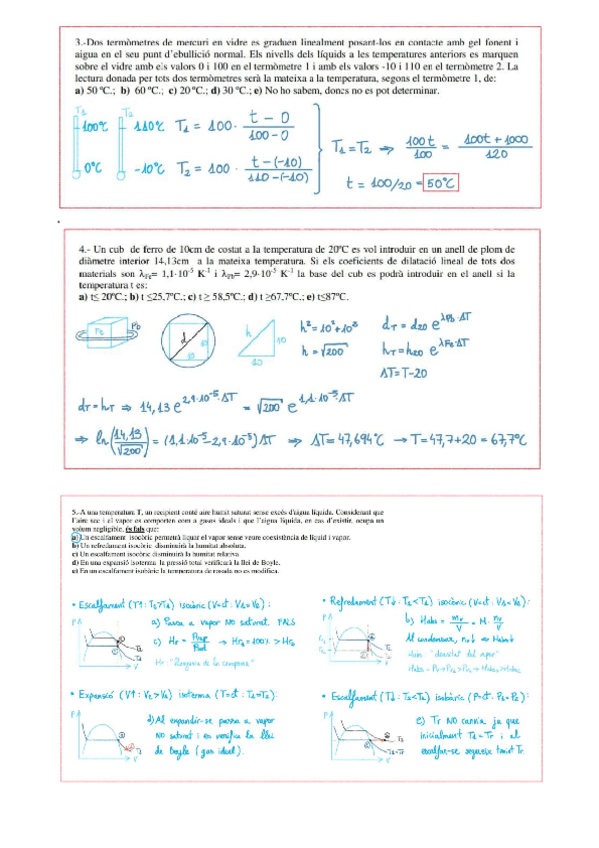 3.-Dos termòmetres de mercuri en vidre es graduen linealment posant-los en contacte amb gel fonent i
aigua en el seu punt d'ebullició normal. Els nivells dels líquids a les temperatures anteriors es marquen
sobre el vidre amb els valors 0 i 100 en el termòmetre 1 i amb els valors -10 i 110 en el termòmetre 2. La
lectura donada per tots dos termòmetres serà la mateixa a la temperatura, segons el termòmetre 1, de:
a) 50 ºC.; b) 60 ºC.; c) 20 ºC.; d) 30 ºC.; e) No ho sabem, doncs no es pot determinar.
T1 T2
100ºC 110ºC T1 = 100 · (t - 0)/(100 - 0)
0ºC -10ºC T2 = 100 · (t - (-10))/(110 - (-10))
T1 = T2 ⇒ 100t/100 = (100t + 1000)/120
t = 100/20 = 50ºC
4.- Un cub de ferro de 10cm de costat a la temperatura de 20ºC es vol introduir en un anell de plom de
diàmetre interior 14,13cm a la mateixa temperatura. Si els coeficients de dilatació lineal de tots dos
materials son λFe= 1,1·10⁻⁵ K⁻¹ i λPb= 2,9·10⁻⁵ K⁻¹ la base del cub es podrà introduir en el anell si la
temperatura t es:
a) t≤ 20ºC.; b) t ≤25,7ºC.; c) t ≥ 58,5ºC.; d) t ≥67,7ºC.; e) t≤87ºC.
Fe Pb
d 10 10
h 10 10
h² = 10² + 10²
h = √200
dT = d20 e^(λPb·ΔT)
hT = h20 e^(λFe·ΔT)
ΔT = T - 20
dT = hT ⇒ 14,13 e^(2,9·10⁻⁵·ΔT) = √200 e^(1,1·10⁻⁵·ΔT)
⇒ ln(14,13/√200) = (1,1·10⁻⁵ - 2,9·10⁻⁵)ΔT ⇒ ΔT = 47,694ºC → T = 47,7 + 20 = 67,7ºC
5.-A una temperatura T, un recipient conté aire humit saturat sense excés d'aigua líquida. Considerant que
l'aire sec i el vapor es comporten com a gases ideals i que l'aigua líquida, en cas d'existir, ocupa un
volum negligible, és fals que:
a) Un escalfament isocòric permetrà liquar el vapor sense veure coexistència de líquid i vapor.
b) Un refredament isocòric disminuirà la humitat absoluta.
c) Un escalfament isocòric disminuirà la humitat relativa
d) En una expansió isoterma la pressió total verificarà la llei de Boyle.
e) En un escalfament isobàric la temperatura de rosada no es modifica.
• Escalfament (T↑: T2>T1) isocòric (V=ct: V2=V1):
a) Passa a vapor NO saturat. FALS
• Refredament (T↓: T2<T1) isocòric (V=ct: V2=V1):
Al condensar,
Habs: "densitat del vapor"
• Expansió (V↑: V2>V1) isoterma (T=ct: T2=T1):
d) Al expandir-se passa a vapor
NO saturat i es verifica la llei
de Boyle (gas ideal).
isobàric (P=ct: P2=P1):
e) Tr NO canvia ja que
inicialment T1=Tr i al
escalfar-se segueix